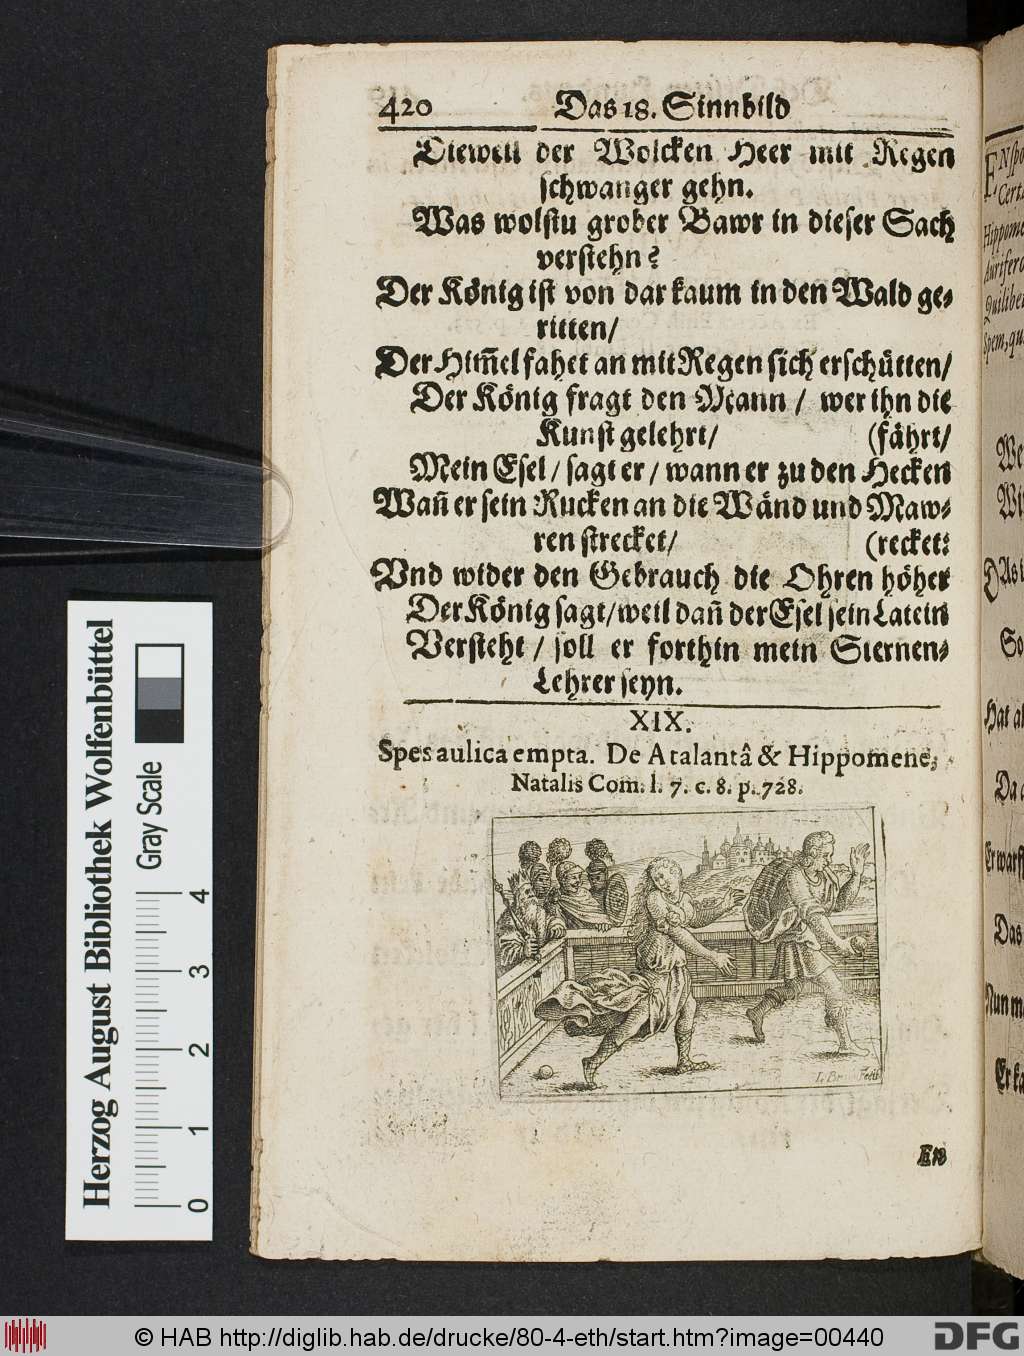 420 Das 18. Sinnbild
Dieweil der Wolcken Heer mit Regen
schwanger gehn.
Was wolstu grober Bawr in dieser Sach
verstehn?
Der König ist von dar kaum in den Wald ge-
ritten/
Der Him̃el fahet an mit Regen sich erschütten/
Der König fragt den Mann / wer ihn die
Kunst gelehrt/ (fährt/
Mein Esel / sagt er / wann er zu den Hecken
Wañ er sein Rucken an die Wänd und Maw-
ren strecket/ (recket:
Vnd wider den Gebrauch die Ohren höher
Der König sagt/weil dañ der Esel sein Latein
Versteht / soll er forthin mein Sternen-
Lehrer seyn.
XIX.
Spes aulica empta. De Atalantâ & Hippomene,
Natalis Com. l. 7. c. 8. p. 728.
fecit
EN
ENspo
Certa
Hippome
Aurifero
Quilibet
Spem, qu
We
Wi
DAs i
So
Hat al
Da
Er warff
Das
Nun m
Er ka
Herzog August Bibliothek Wolfenbüttel
Gray Scale
0 1 2 3 4
© HAB http://diglib.hab.de/drucke/80-4-eth/start.htm?image=00440
DFG